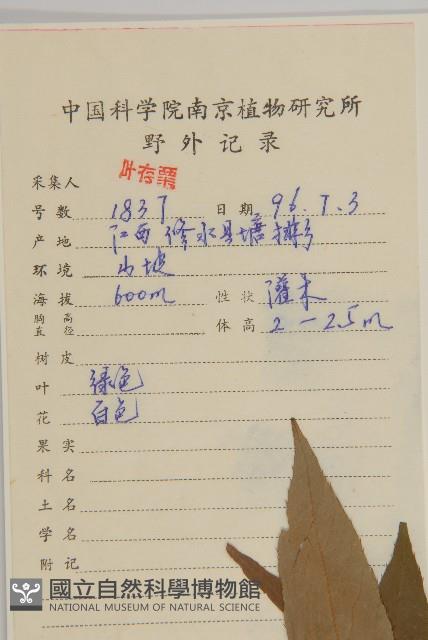 中国科学院南京植物研究所
野外记录
采集人 叶存粟
号数 1837 日期 96.7.3
产地 江西修水县塘排
环境 山坡
海拔 600m 性状 灌木
胸高直径 体高 2-2.5m
树皮
叶 绿色
花 白色
果实
科名
土名
学名
附记
國立自然科學博物館
NATIONAL MUSEUM OF NATURAL SCIENCE